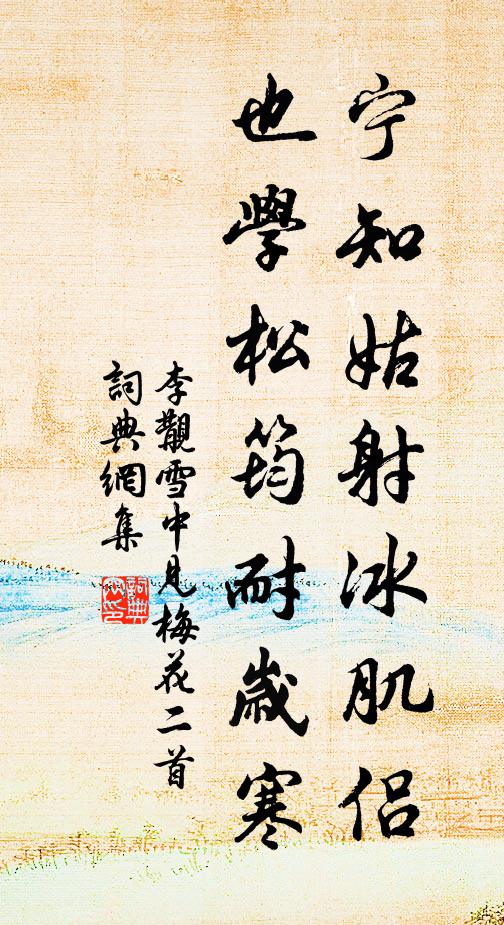 宁知姑射冰肌侣
也學松筠耐歲寒
李觀雪中見梅花二首
詞典網集